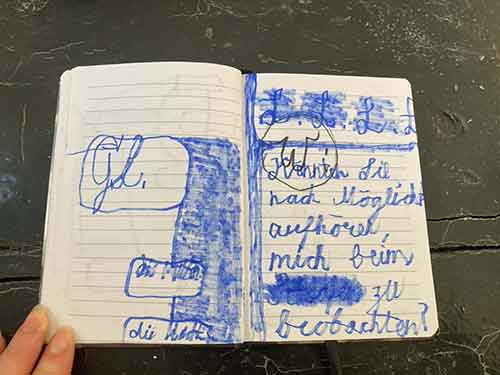 G.L.
die
L. L. L. L
W.
Könnten Sie
nach Möglichk
aufhören,
mich beim
zu
beobachten?